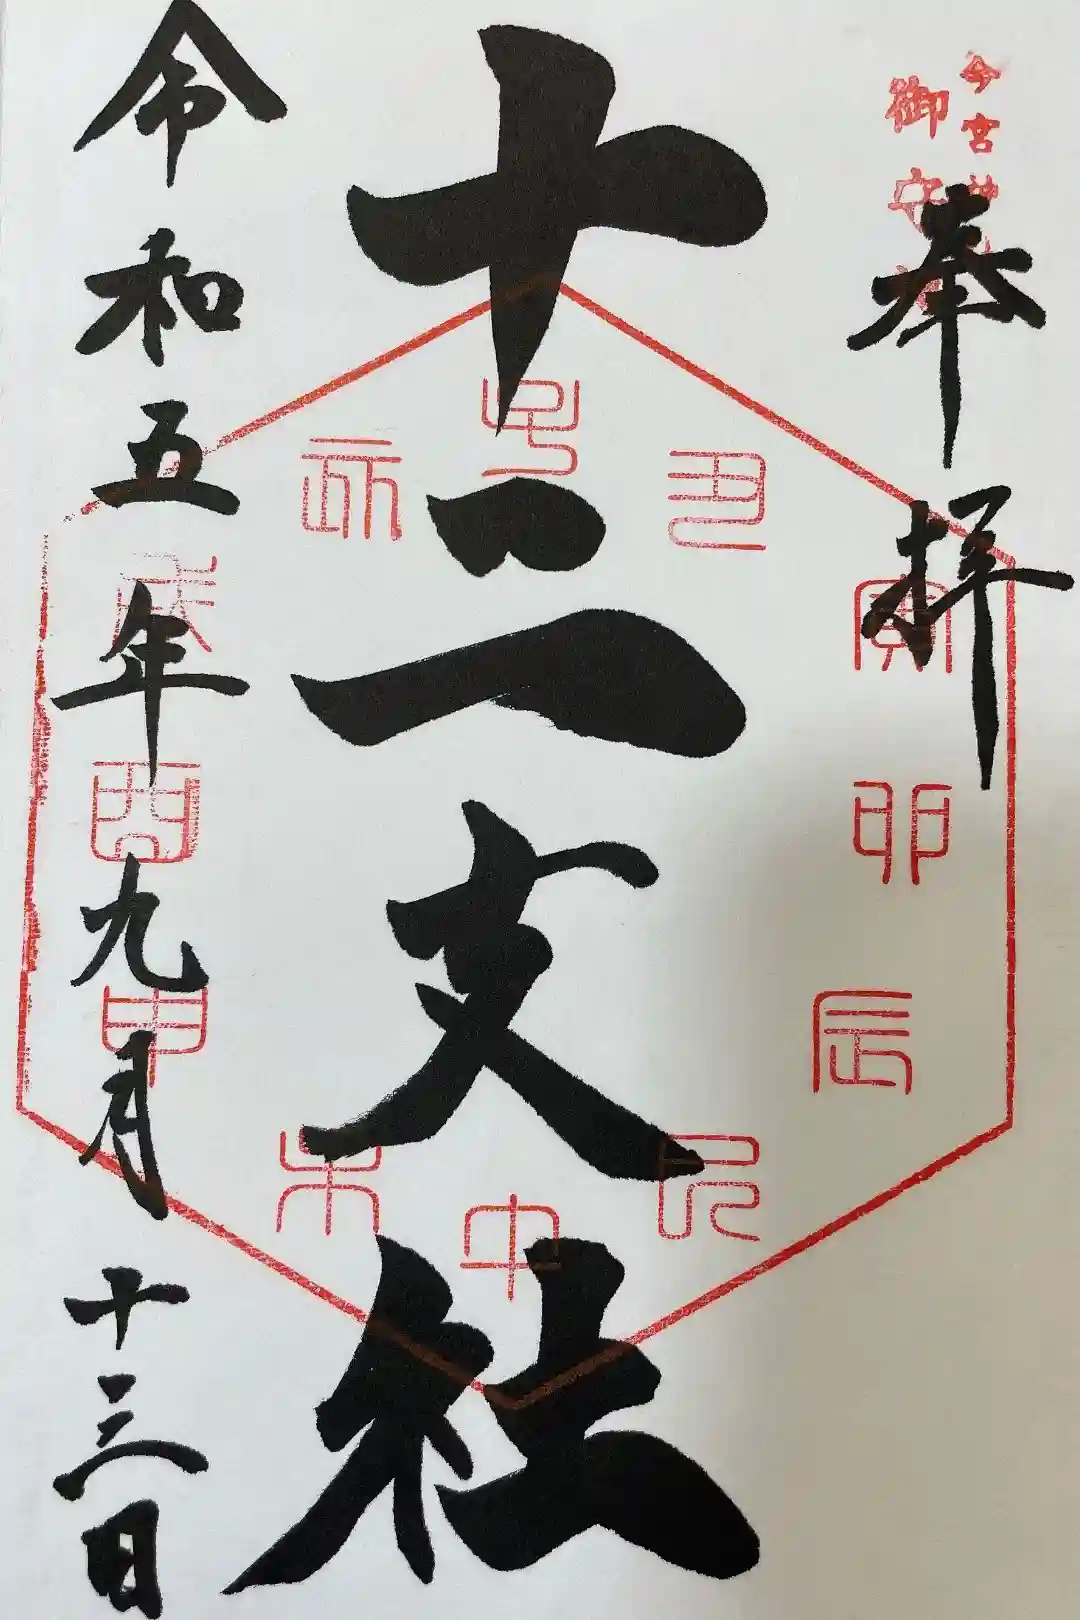 今宮神
御守
奉拝
十二支社
子
丑
寅
卯
辰
巳
午
未
申
酉
戌
亥
令和五年九月十三日